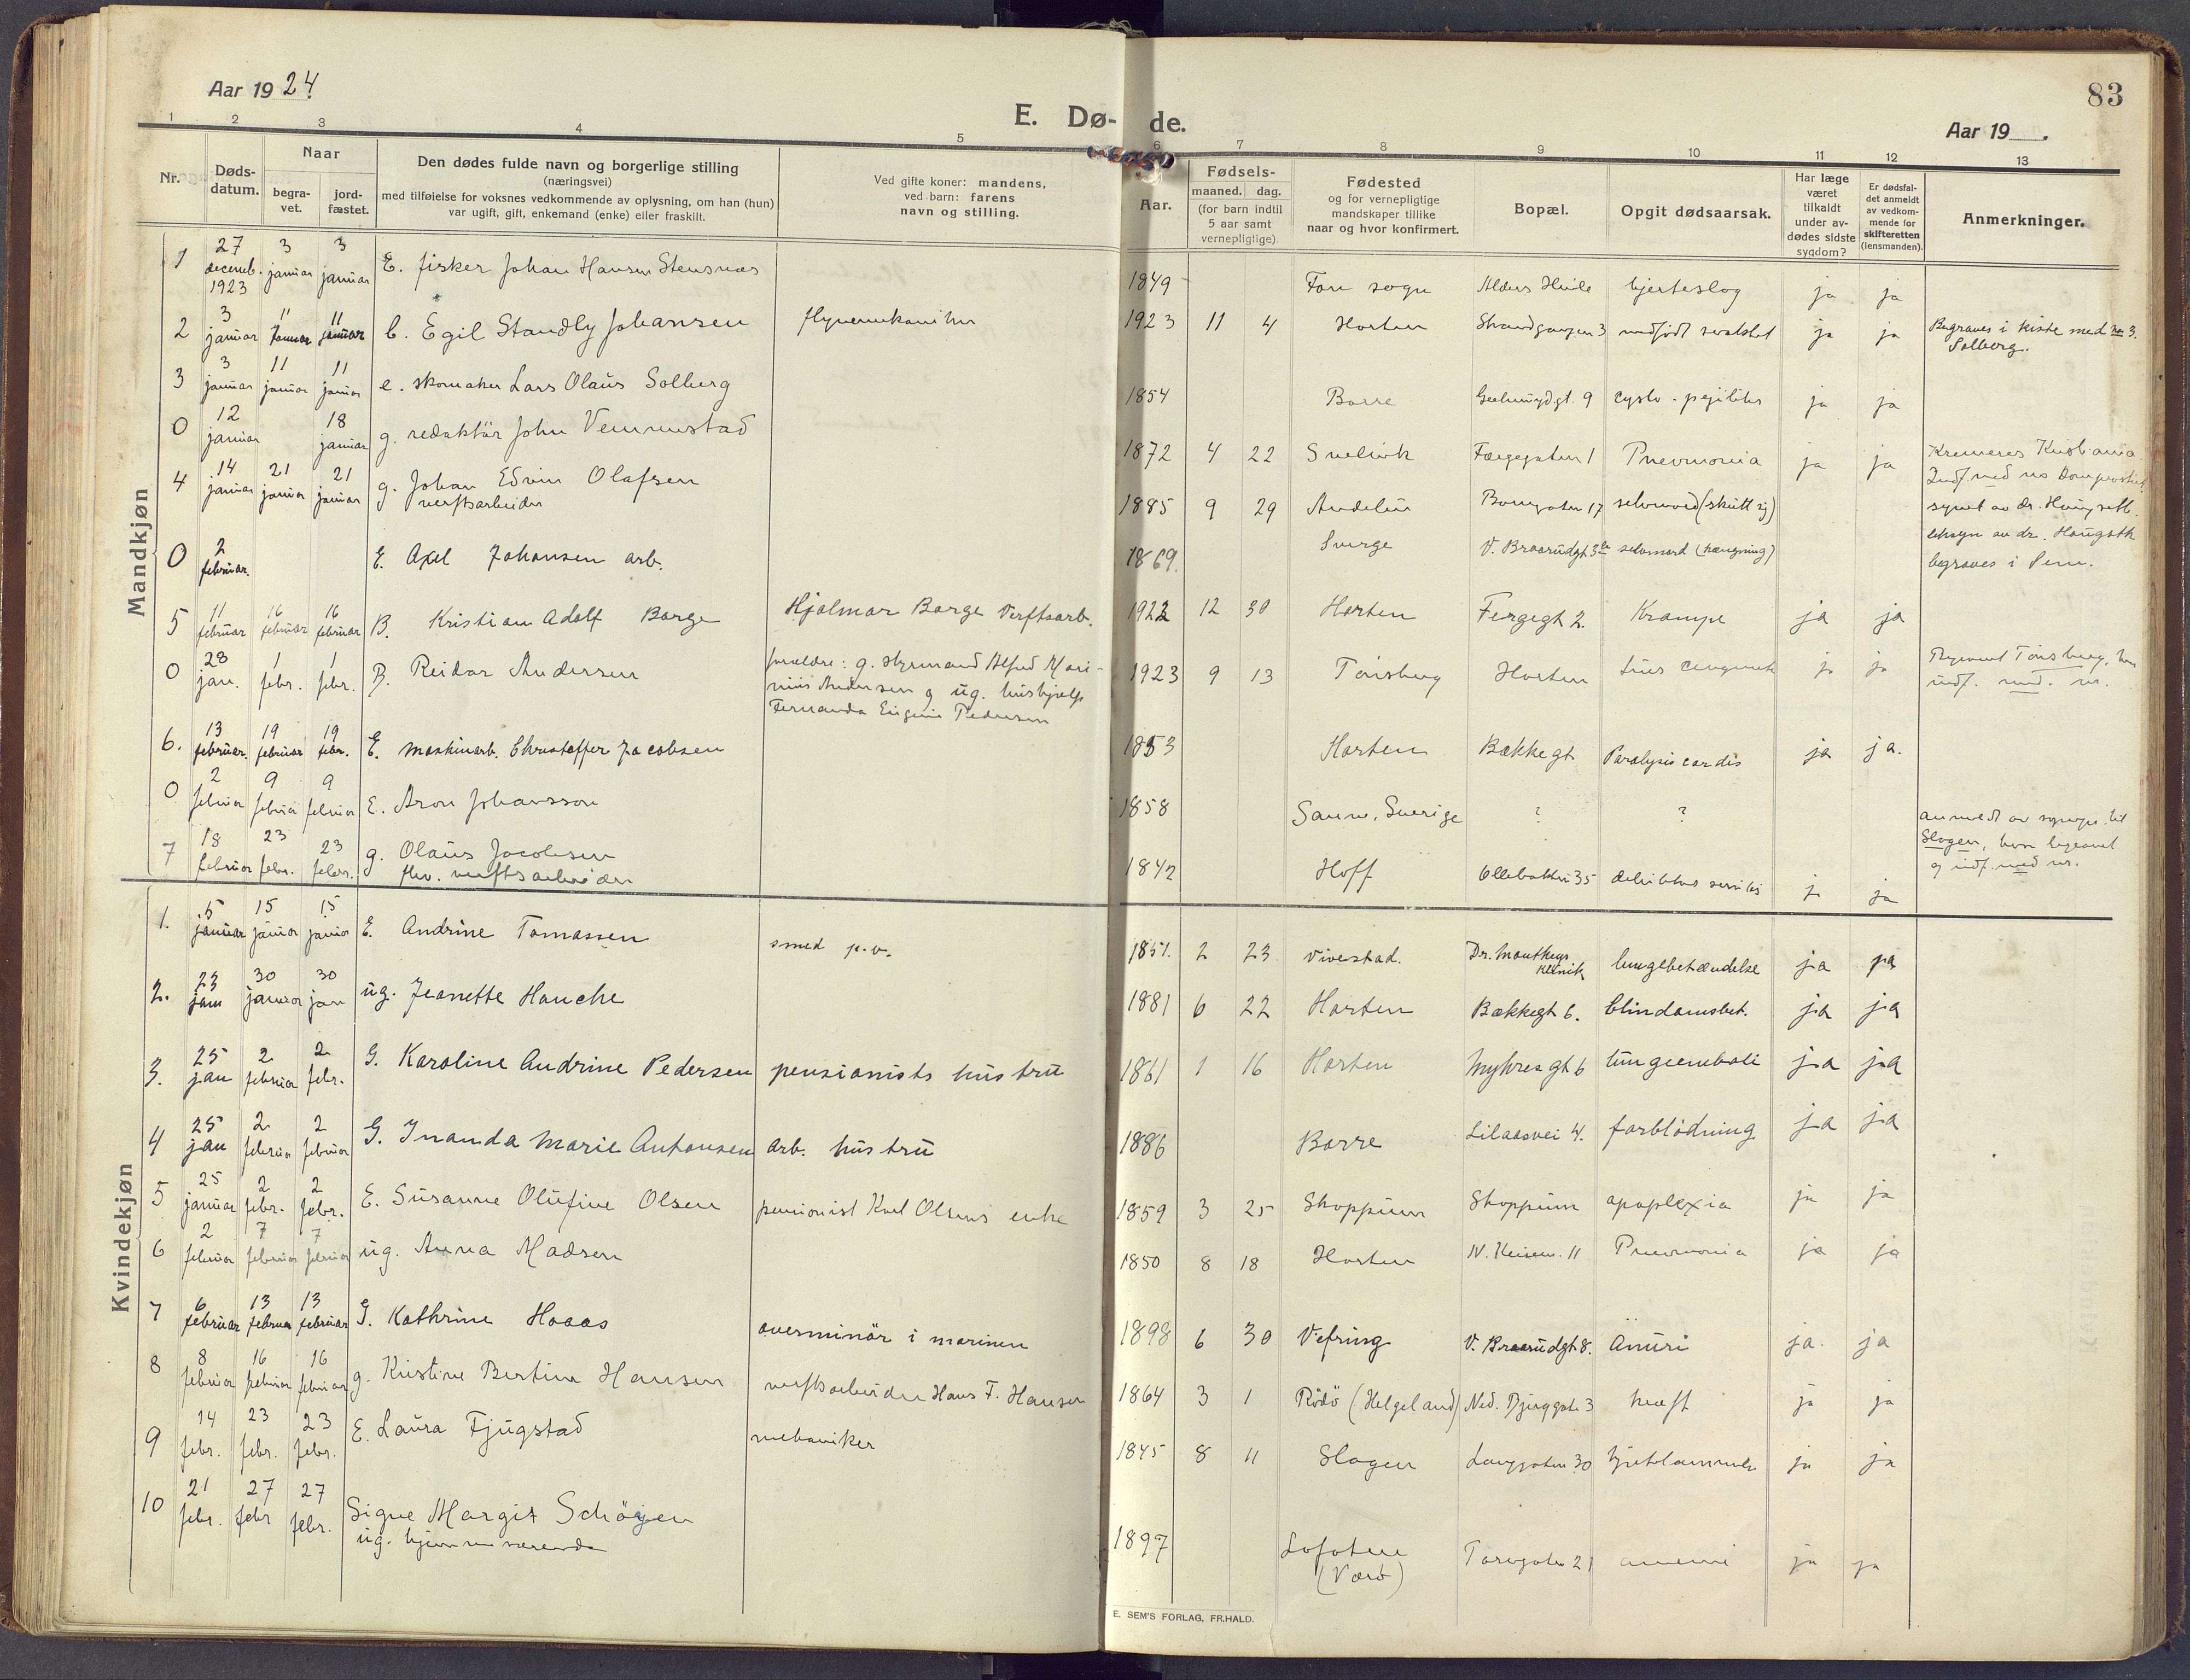 Aar 1924
83
E. Dø- de.
Aar 19__.
1 2 3 4 5 6 7 8 9 10 11 12 13
Nr.
Døds-
datum.
Naar
begra-
vet.
jord-
fæstet.
Den dødes fulde navn og borgerlige stilling
(næringsvei)
med tilføielse for voksnes vedkommende av oplysning, om han (hun)
var ugift, gift, enkemand (enke) eller fraskilt.
Ved gifte koner: mandens,
ved barn: farens
navn og stilling.
Aar.
Fødsels-
maaned. dag.
(for barn indtil
5 aar samt
vernepligtige)
Fødested
og for vernepligtige
mandskaper tillike
naar og hvor konfirmert.
Bopæl.
Opgit dødsaarsak.
Har læge
været
tilkaldt
under av-
dødes sidste
sygdom?
Er dødsfal-
det anmeldt
av vedkom-
mende for
skifteretten
(lensmanden).
Anmerkninger.
Mandkjøn
1 27 decemb. 1923 3 januar 3 januar E. fisker Johan Hansen Stensnæs 1849 sogn hjerteslag ja ja
2 3 januar 11 januar 11 januar b. Egil Standly Johansen 1923 11 4 Horten 3 ja ja Begraves i kiste med no 3. Solberg.
3 3 januar 11 januar 11 januar e. skomaker Lars Olaus Solberg 1854 Borre 9 ja ja
0 12 januar 18 januar g. redaktör John Vemmestad 1872 4 22 Svelvik Færgegaten 1 Pneumonia ja ja Kremeres Kristiania
4 14 januar 21 januar 21 januar g. Johan Edvin Olafsen
verftsarbeider 1885 9 29 17 selvmord (skutt sig)
0 2 februar. E. Axel Johansen arb. 1869. Sverge V. Braarudgt selvmord (hængning) begraves i Sem.
5 11 februar 16 februar 16 februar B. Kristian Adolf Borge Hjalmar Borge Verftsarb. 1922 12 30 Horten Fergegt 2. Krampe ja ja
0 28 jan. 1 febr. 1 febr. B. Reidar Andersen forældre: g. styrmand Alfred Mari-
nius Andersen og ug. hushjelp
Fernanda Eugenie Pedersen 1923 9 13 Tönsberg Horten ja ja
6. 13 februar. 19 februar 19 febr. E. maskinarb. Christoffer Jacobsen 1853 Horten Bækkegt Paralysis cordis ja ja.
0 2 februar 9 februar 9 februar E. Aron Johansson 1858 Sverige ? ?
Slagen,
7 18 februar 23 febr. 23 febr. g. Olaus Jacobsen
fhv. verftsarbeider 1842 Hoff 35 ja ja
Kvindekjøn
1. 5 januar 15 januar 15 januar E. Andrine Tomassen smed p.v. 1851. 2 23 Vivestad. Dr. klinik lungebetændelse ja ja
2. 23 jan 30 januar 30 jan ug. Jeanette Hauche 1881 6 22 Horten Bækkegt 6. blindtarmsbet. ja ja
3. 25 jan 2 februar 2 febr. G. Karoline Andrine Pedersen pensionists hustru 1861 1 16 Horten Myhres gt 6 lungeemboli ja ja
4 25 jan 2 februar 2 februar G. Inanda Marie Antonsen arb. hustru 1886 Borre Lilaasvei 4. forblödning ja ja
5 25 januar 2 febr. 2 febr. E. Susanne Olufine Olsen pensionist Karl Olsens enke 1859 3 25 Skoppum Skoppum apoplexia ja ja
6 2 februar 7 februar 7 februar ug. Anna Madsen 1850 8 18 Horten 11 Pneumonia ja ja
7 6 februar 13 februar 13 februar G. Kathrine Haaas overminör i marinen 1898 6 30 Vefring V. Braarudgt 8. Anuri ja. ja
8 8 februar 16 februar 16 februar g. Kristine Bertine Hansen verftsarbeider Hans F. Hansen 1864 3 1 Rödö (Helgeland) 3 kræft ja ja
9 14 febr. 23 febr. 23 febr. E. Laura Fjugstad mekaniker 1845 8 11 Slagen Langgaten 30 ja ja
10 21 febr. 27 febr 27 febr. Signe Margit Schöyen
ug. 1897 Lofoten
(Værö) Torvgaten 21 anemi ja ja
E. SEM'S FORLAG, FR.HALD.